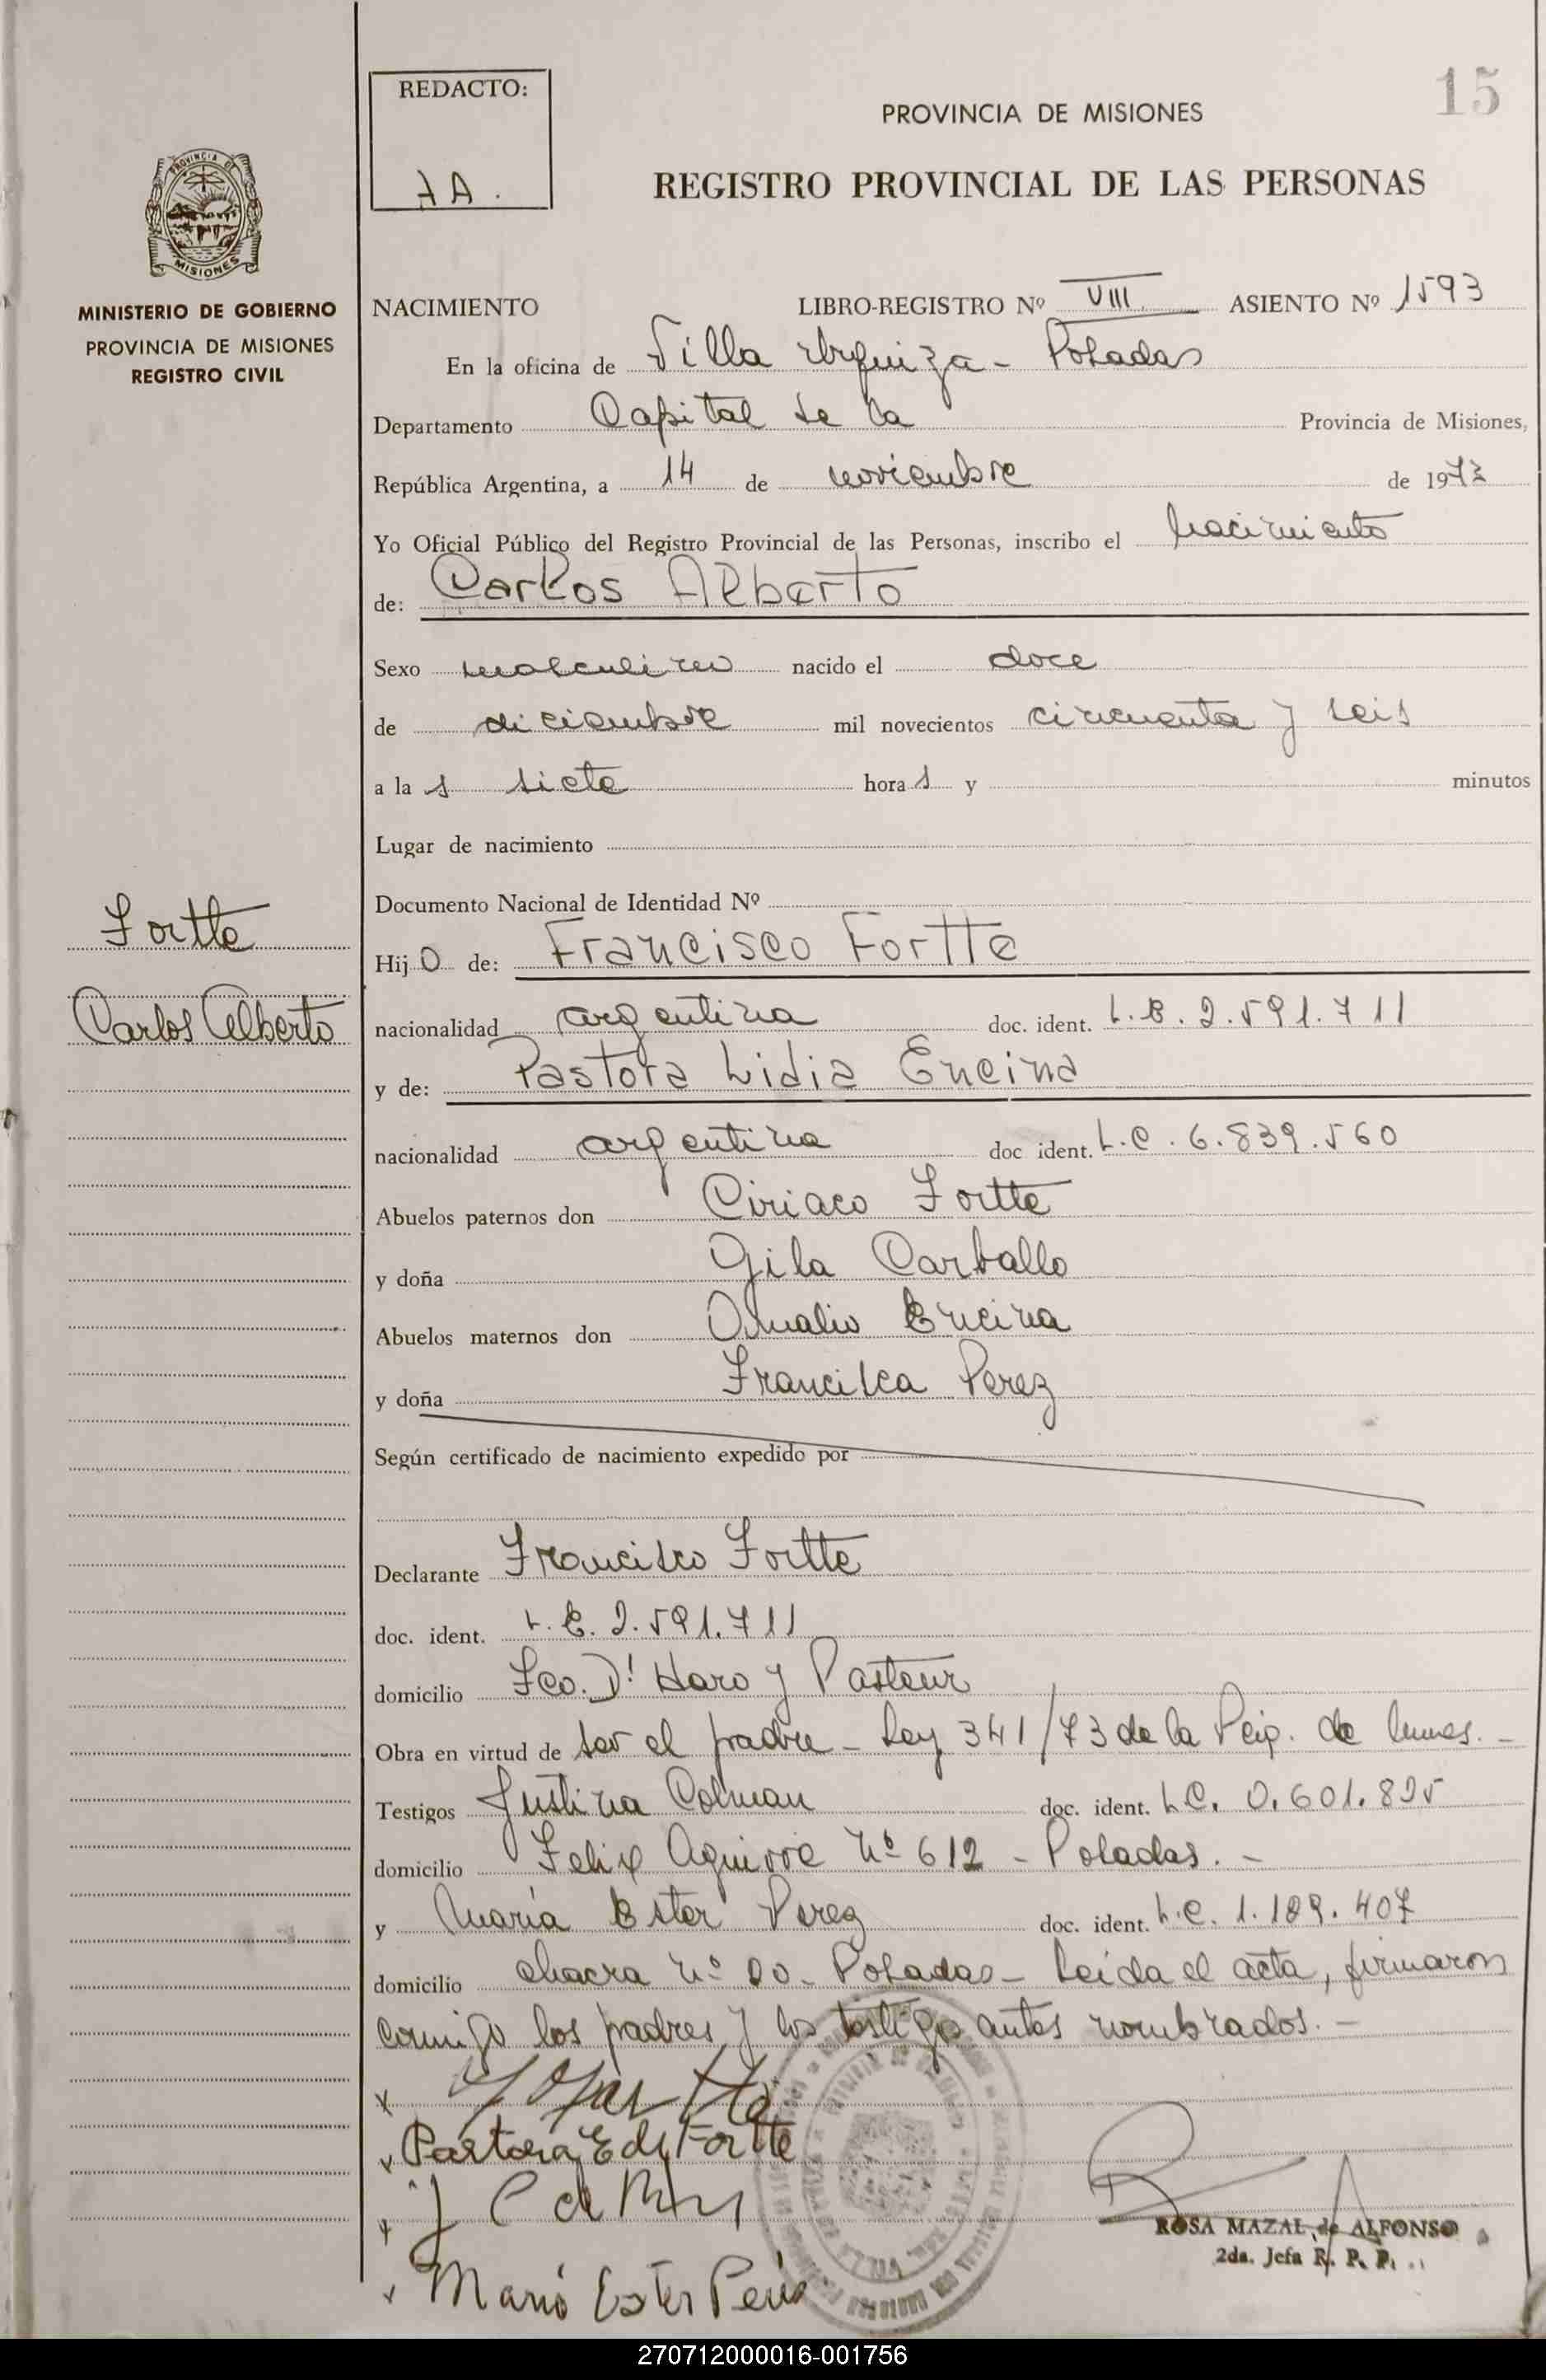 15
REDACTO:
PROVINCIA DE MISIONES
REGISTRO PROVINCIAL DE LAS PERSONAS
PROVINCIA DE
MISIONES
MINISTERIO DE GOBIERNO
PROVINCIA DE MISIONES
REGISTRO CIVIL
NACIMIENTO LIBRO-REGISTRO Nº VIII ASIENTO Nº 1593
En la oficina de Villa Urquiza - Posadas
Departamento Capital de la Provincia de Misiones,
República Argentina, a 14 de noviembre de 1973
Yo Oficial Público del Registro Provincial de las Personas, inscribo el nacimiento
de: Carlos Alberto
Sexo masculino nacido el doce
de diciembre mil novecientos cincuenta y seis
a la s siete hora s y minutos
Lugar de nacimiento
Documento Nacional de Identidad Nº
Fortte
Hij o de: Francisco Fortte
Carlos Alberto
nacionalidad argentina doc. ident. L.E. 2.591.711
y de: Pastora Lidia Encina
nacionalidad argentina doc ident. L.C. 6.839.560
Abuelos paternos don Ciriaco Fortte
y doña Gila Carballo
Abuelos maternos don Encina
y doña Francisca Perez
Según certificado de nacimiento expedido por
Declarante Francisco Fortte
doc. ident. L.E. 2.591.711
domicilio Fco. D' Haro y Pasteur
Obra en virtud de ser el padre - Ley 341/73 de la de
Testigos Justina Colman doc. ident. L.C. 0.601.895
domicilio Felix Aguirre Nº 612 - Posadas. -
y María Ester Perez doc. ident. L.C. 1.189.407
domicilio chacra nº - Posadas - Leída el acta, firmaron
conmigo los padres y los testigo antes nombrados. -
Pastora E de Fortte
ROSA MAZAL de ALFONSO
2da. Jefa R. P. P.
270712000016-001756